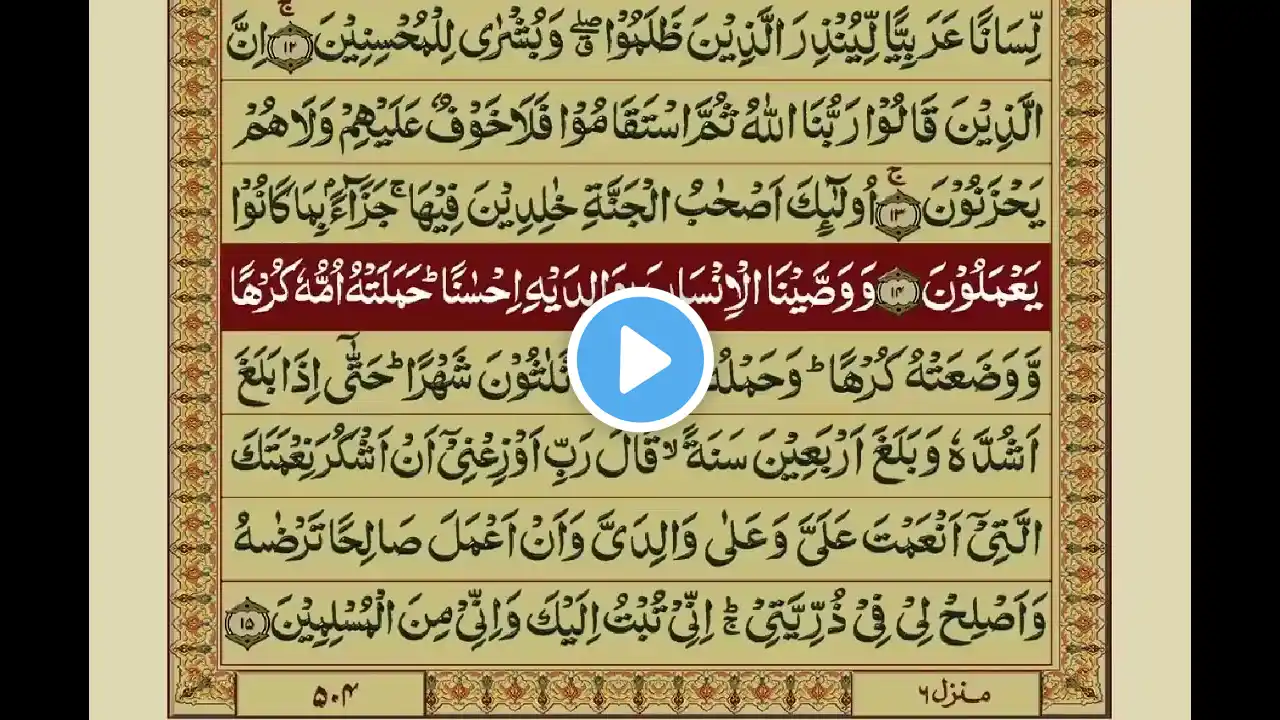 لِّسَانًا عَرَبِيًّا لِّيُنْذِرَ الَّذِيْنَ ظَلَمُوْا ۖۗ وَبُشْرٰى لِلْمُحْسِنِيْنَ ۚ﴿۱۲﴾ اِنَّ
الَّذِيْنَ قَالُوْا رَبُّنَا اللّٰهُ ثُمَّ اسْتَقَامُوْا فَلَا خَوْفٌ عَلَيْهِمْ وَلَا هُمْ
يَحْزَنُوْنَ ۚ﴿۱۳﴾ اُولٰٓئِكَ اَصْحٰبُ الْجَنَّةِ خٰلِدِيْنَ فِيْهَا ۚ جَزَآءًۢ بِمَا كَانُوْا
يَعْمَلُوْنَ ﴿۱۴﴾ وَوَصَّيْنَا الْاِنْسَانَ بِوَالِدَيْهِ اِحْسٰنًا ؕ حَمَلَتْهُ اُمُّهٗ كُرْهًا
وَّوَضَعَتْهُ كُرْهًا ؕ وَحَمْلُهٗ ثَلٰثُوْنَ شَهْرًا ؕ حَتّٰۤى اِذَا بَلَغَ
اَشُدَّهٗ وَبَلَغَ اَرْبَعِيْنَ سَنَةً ۙ قَالَ رَبِّ اَوْزِعْنِيْۤ اَنْ اَشْكُرَ نِعْمَتَكَ
الَّتِيْۤ اَنْعَمْتَ عَلَيَّ وَعَلٰى وَالِدَيَّ وَاَنْ اَعْمَلَ صَالِحًا تَرْضٰىهُ
وَاَصْلِحْ لِيْ فِيْ ذُرِّيَّتِيْ ۚؕ اِنِّيْ تُبْتُ اِلَيْكَ وَاِنِّيْ مِنَ الْمُسْلِمِيْنَ ﴿۱۵﴾
منزل ۶
۵۰۴